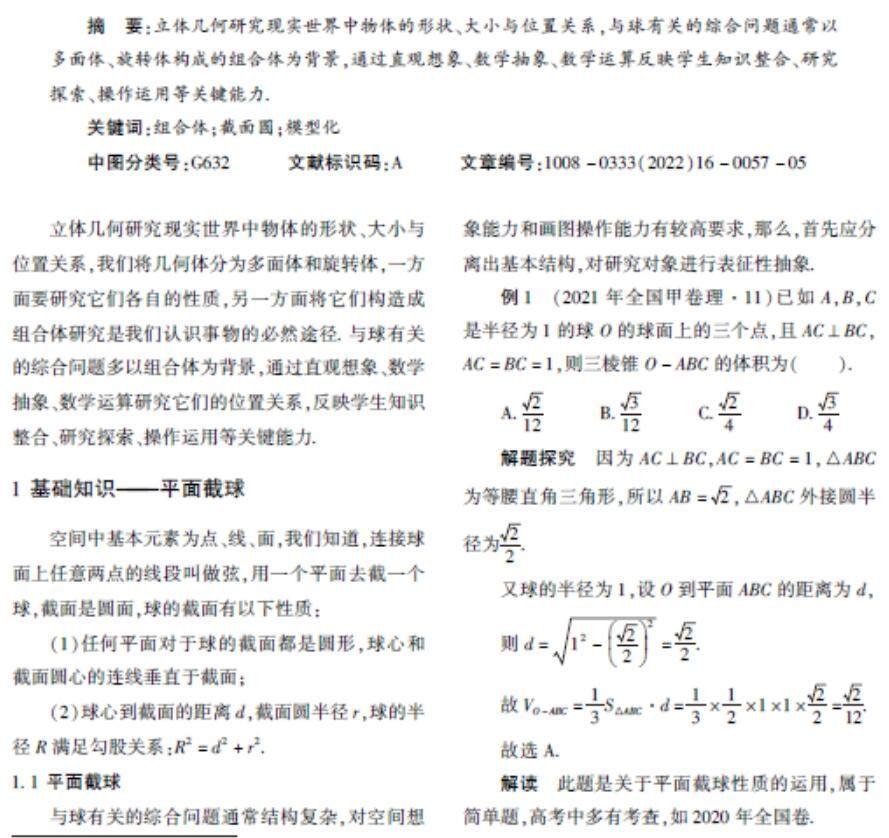 摘　要:立体几何研究现实世界中物体的形状、大小与位置关系,与球有关的综合问题通常以
多面体、旋转体构成的组合体为背景,通过直观想象、数学抽象、数学运算反映学生知识整合、研究
探索、操作运用等关键能力.
关键词:组合体;截面圆;模型化
中图分类号:G632　文献标识码:A　文章编号:1008-0333(2022)16-0057-05
立体几何研究现实世界中物体的形状、大小与
位置关系,我们将几何体分为多面体和旋转体,一方
面要研究它们各自的性质,另一方面将它们构造成
组合体研究是我们认识事物的必然途径. 与球有关
的综合问题多以组合体为背景,通过直观想象、数学
抽象、数学运算研究它们的位置关系,反映学生知识
整合、研究探索、操作运用等关键能力.
1 基础知识——平面截球
空间中基本元素为点、线、面,我们知道,连接球
面上任意两点的线段叫做弦,用一个平面去截一个
球,截面是圆面,球的截面有以下性质:
(1)任何平面对于球的截面都是圆形,球心和
截面圆心的连线垂直于截面;
(2)球心到截面的距离 d,截面圆半径 r,球的半
径 R 满足勾股关系:R²=d²+r².
1.1 平面截球
与球有关的综合问题通常结构复杂,对空间想
象能力和画图操作能力有较高要求,那么,首先应分
离出基本结构,对研究对象进行表征性抽象.
例 1　(2021 年全国甲卷理·11)已如 A,B,C
是半径为 1 的球 O 的球面上的三个点,且 AC⊥BC,
AC=BC=1,则三棱锥 O-ABC 的体积为(　　).
A. √2/12　B. √3/12　C. √2/4　D. √3/4
解题探究　因为 AC⊥BC,AC=BC=1,△ABC
为等腰直角三角形,所以 AB=√2,△ABC 外接圆半
径为√2/2.
又球的半径为 1,设 O 到平面 ABC 的距离为 d,
则 d=√(1²-(√2/2)²)=√2/2.
故 V_{O-ABC}=1/3 S_{△ABC}·d=1/3×1/2×1×1×√2/2=√2/12.
故选 A.
解读　此题是关于平面截球性质的运用,属于
简单题,高考中多有考查,如 2020 年全国卷.